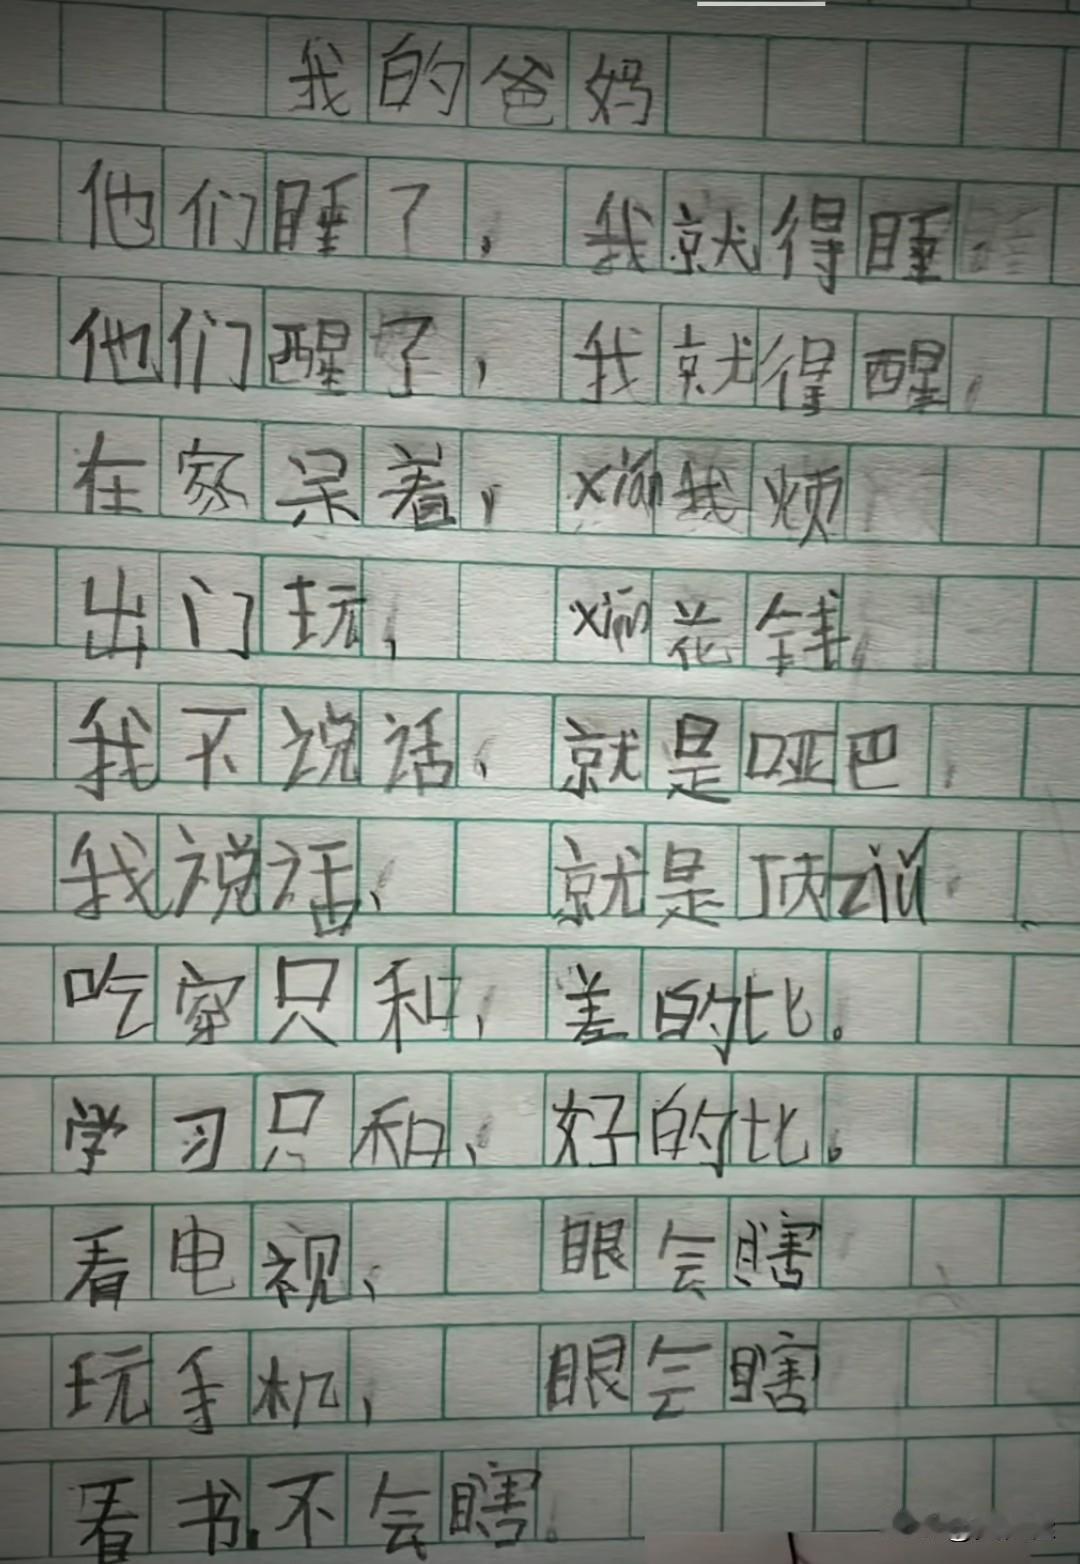 我的爸妈
他们睡了，我就得睡
他们醒了，我就得醒，
在家呆着，xián我烦
出门玩，xián花钱，
我不说话，就是哑巴，
我说话，就是顶zuǐ
吃穿只和，差的比。
学习只和，好的比。
看电视，眼会瞎
玩手机，眼会瞎
看书不会瞎。